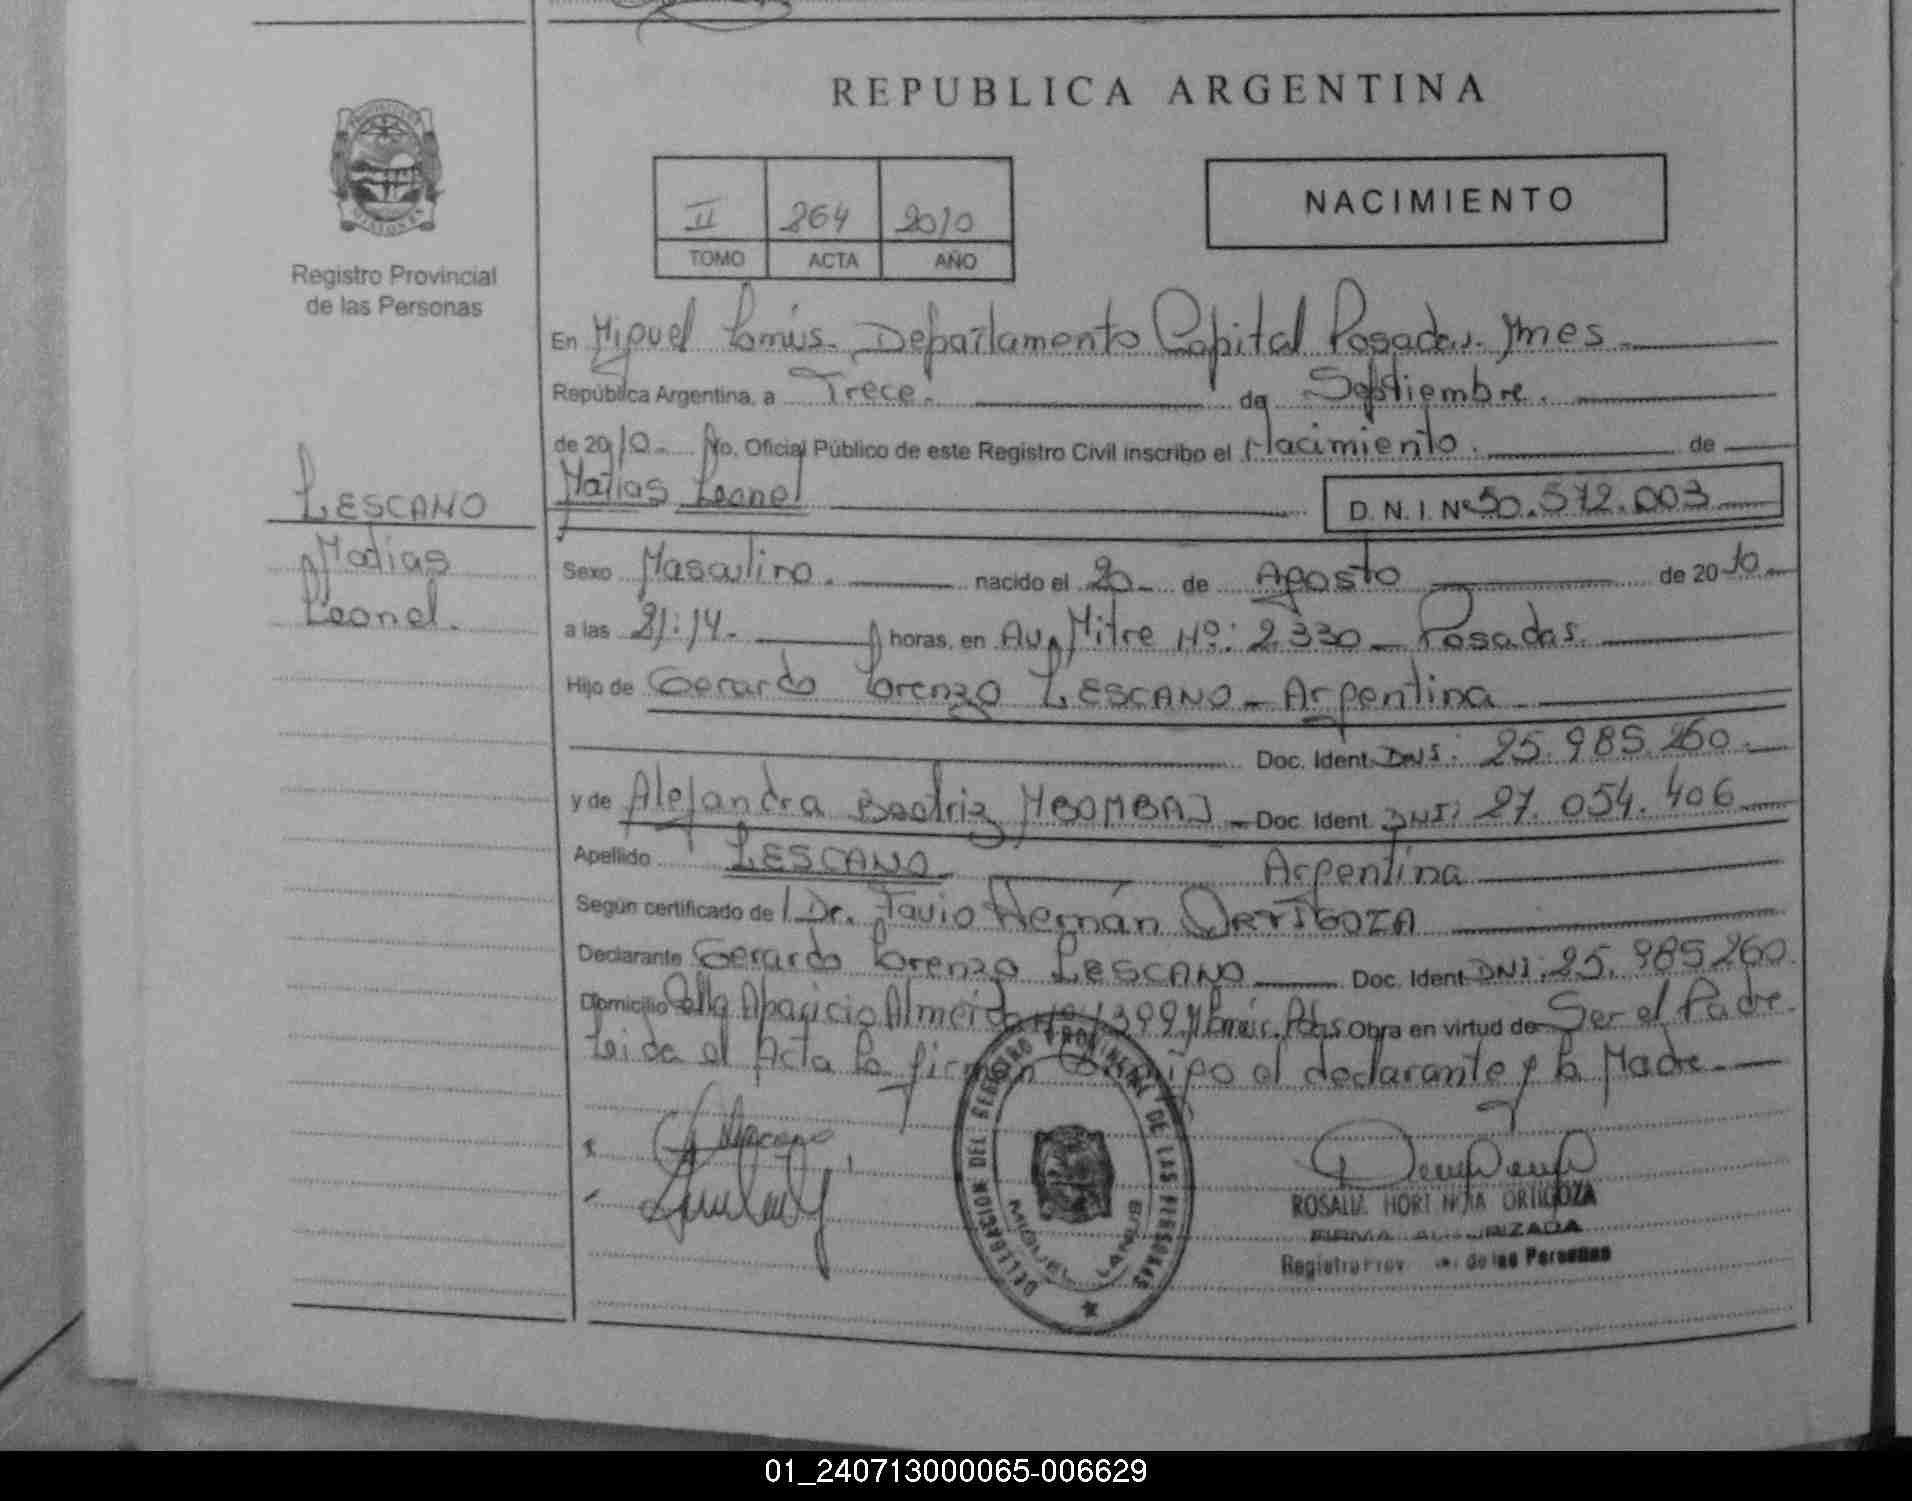 REPUBLICA ARGENTINA
NACIMIENTO
II 264 2010
TOMO ACTA AÑO
Registro Provincial
de las Personas
LESCANO
Matias
Leonel.
En Miguel Lanús. Departamento Capital Posadas. Mnes
República Argentina, a Trece. de Septiembre.
de 2010. Yo, Oficial Público de este Registro Civil inscribo el Nacimiento. de
Matias Leonel D. N. I. Nº 50.572.003
Sexo Masculino. nacido el 20 de Agosto de 2010
a las 21:14. horas, en Av. Mitre Nº: 2330 Posadas.
Hijo de Gerardo Lorenzo LESCANO - Argentina
Doc. Ident. DNI: 25.985.260.
y de Alejandra Beatriz Doc. Ident. DNI: 27.054.406
Apellido LESCANO Argentina
Según certificado de Dr. Favio Hernán ORTIGOZA
Declarante Gerardo Lorenzo LESCANO Doc. Ident DNI: 25.985260.
Domicilio Aparicio Almeida Obra en virtud de Ser el Padre.
Leida el Acta la firman Conmigo el declarante y la Madre.
DELEGACION DEL REGISTRO PROVINCIAL DE LAS PERSONAS
MIGUEL LANUS
ORTIGOZA
FIRMA AUTORIZADA
de las Personas
01_240713000065-006629